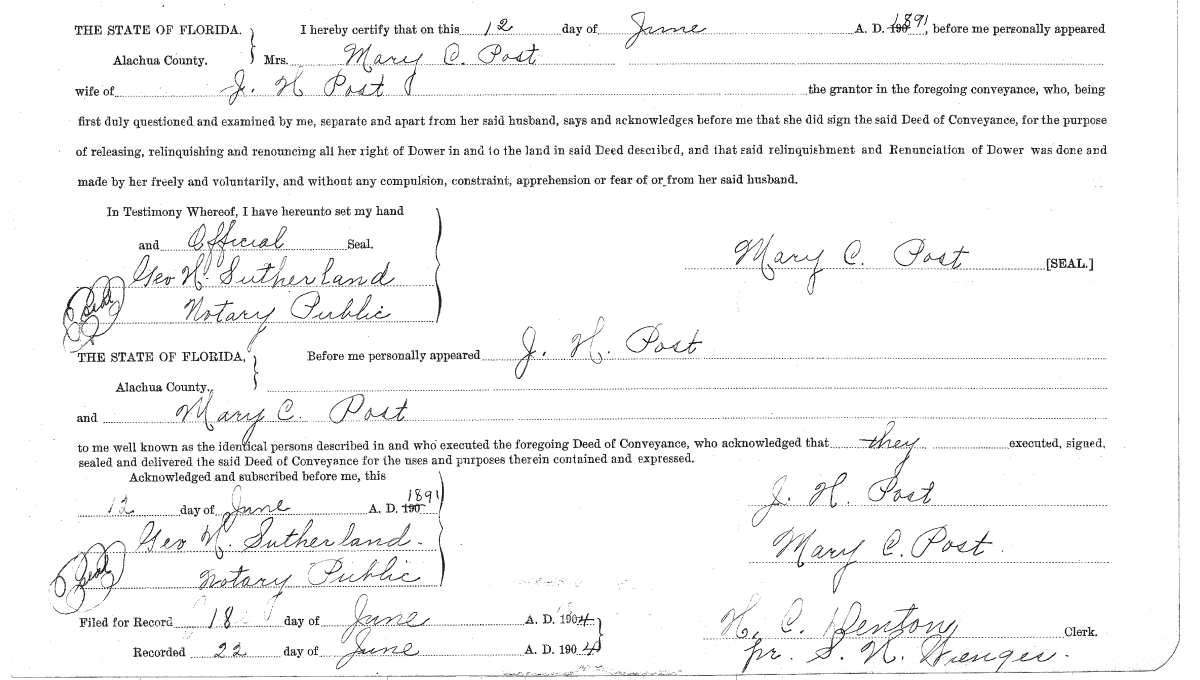 THE STATE OF FLORIDA. I hereby certify that on this 12 day of June A. D. 190 1891, before me personally appeared
Alachua County. Mrs. Mary C. Post
wife of J. H Post the grantor in the foregoing conveyance, who, being
first duly questioned and examined by me, separate and apart from her said husband, says and acknowledges before me that she did sign the said Deed of Conveyance, for the purpose
of releasing, relinquishing and renouncing all her right of Dower in and to the land in said Deed described, and that said relinquishment and Renunciation of Dower was done and
made by her freely and voluntarily, and without any compulsion, constraint, apprehension or fear of or from her said husband.
In Testimony Whereof, I have hereunto set my hand
and Official Seal.
Mary C. Post [SEAL.]
Geo H. Sutherland
Seal
Notary Public
THE STATE OF FLORIDA, Before me personally appeared J. H. Post
Alachua County.
and Mary C. Post
to me well known as the identical persons described in and who executed the foregoing Deed of Conveyance, who acknowledged that they executed, signed,
sealed and delivered the said Deed of Conveyance for the uses and purposes therein contained and expressed.
Acknowledged and subscribed before me, this
12 day of June A. D. 190 1891
J. H. Post
Geo H. Sutherland.
Mary C. Post.
Seal
Notary Public
Filed for Record 18 day of June A. D. 1904
H. C. Denton Clerk.
Recorded 22 day of June A. D. 1904
pr. S. H. Wienges.